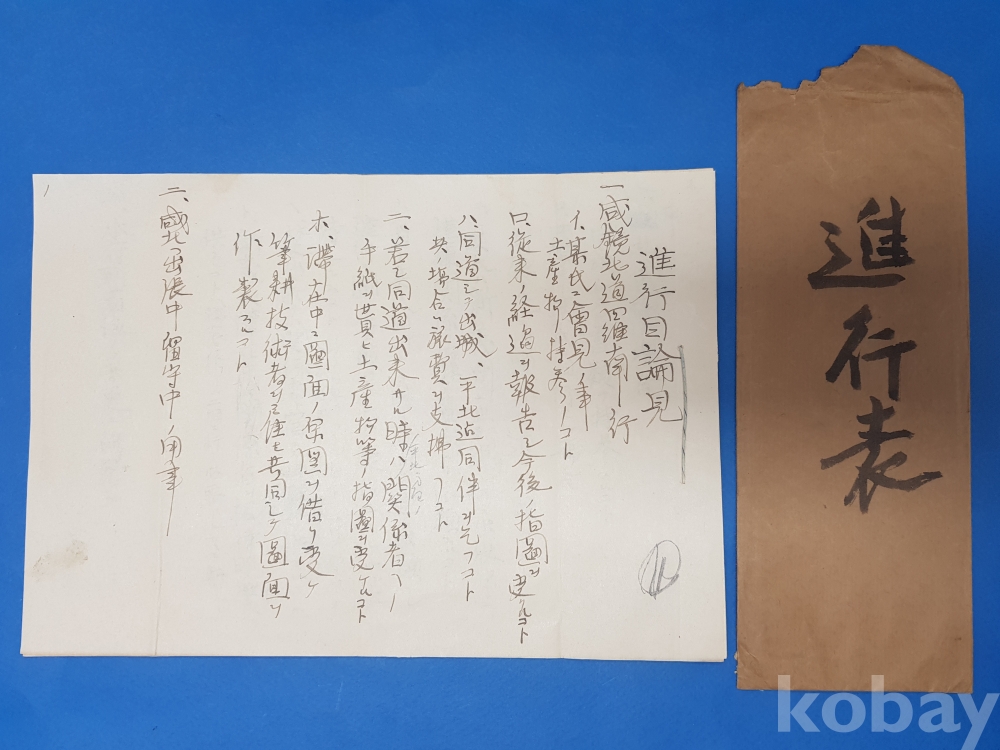 進行表
進行目論見
一、咸鏡北道羅南行
イ、某氏ニ會見ノ事
土産物持参ノコト
ロ、従来ノ経過ヲ報告シ今後ノ指圖ヲ受クルコト
ハ、同道シテ出城、平北迄同伴ヲ乞フコト
其ノ場合ハ旅費ヲ支拂フコト
ニ、若シ同道出来サル時ハ関係者ヘノ
手紙ヲ貰ヒ土産物等ノ指圖ヲ受ケルコト
ホ、滞在中ニ圖面ノ原圖ヲ借リ受ケ
筆耕技術者ヲ雇ヒ共同シテ圖面ヲ
作製スルコト
二、咸北ニ出張中留守中ノ用事
kobay